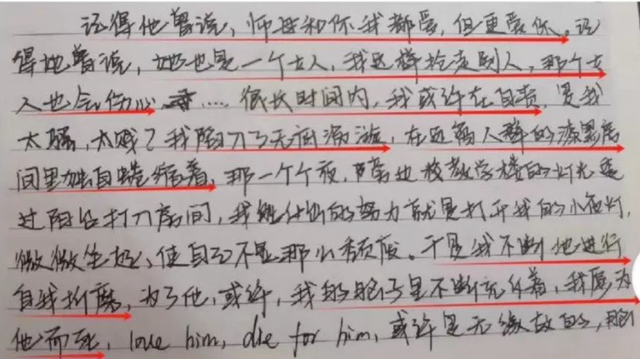 记得他曾说，师母和你我都爱，但更爱你。记
得她曾说，她也是一个女人，我这样抢走别人，那个女
人也会伤心 …… 很长时间内，我或许在自责，是我
太骚，太贱了我陷入了无底漩涡，在远离人群的漆黑房
间里独自蜷缩着，那一个个夜，隔学校教学楼的灯光透
过阳台打入房间，我能付出的努力就是打开我的小夜灯，
微微坐起，使自己不是那么颓废。于是我不断地进行
自我折磨，为了他，或许，我的脑子里不断充斥着，我愿为
他而死，love him, die for him, 或许是无缘故的，